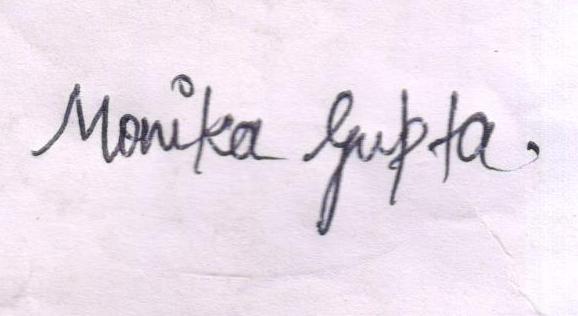 Monika Gupta.